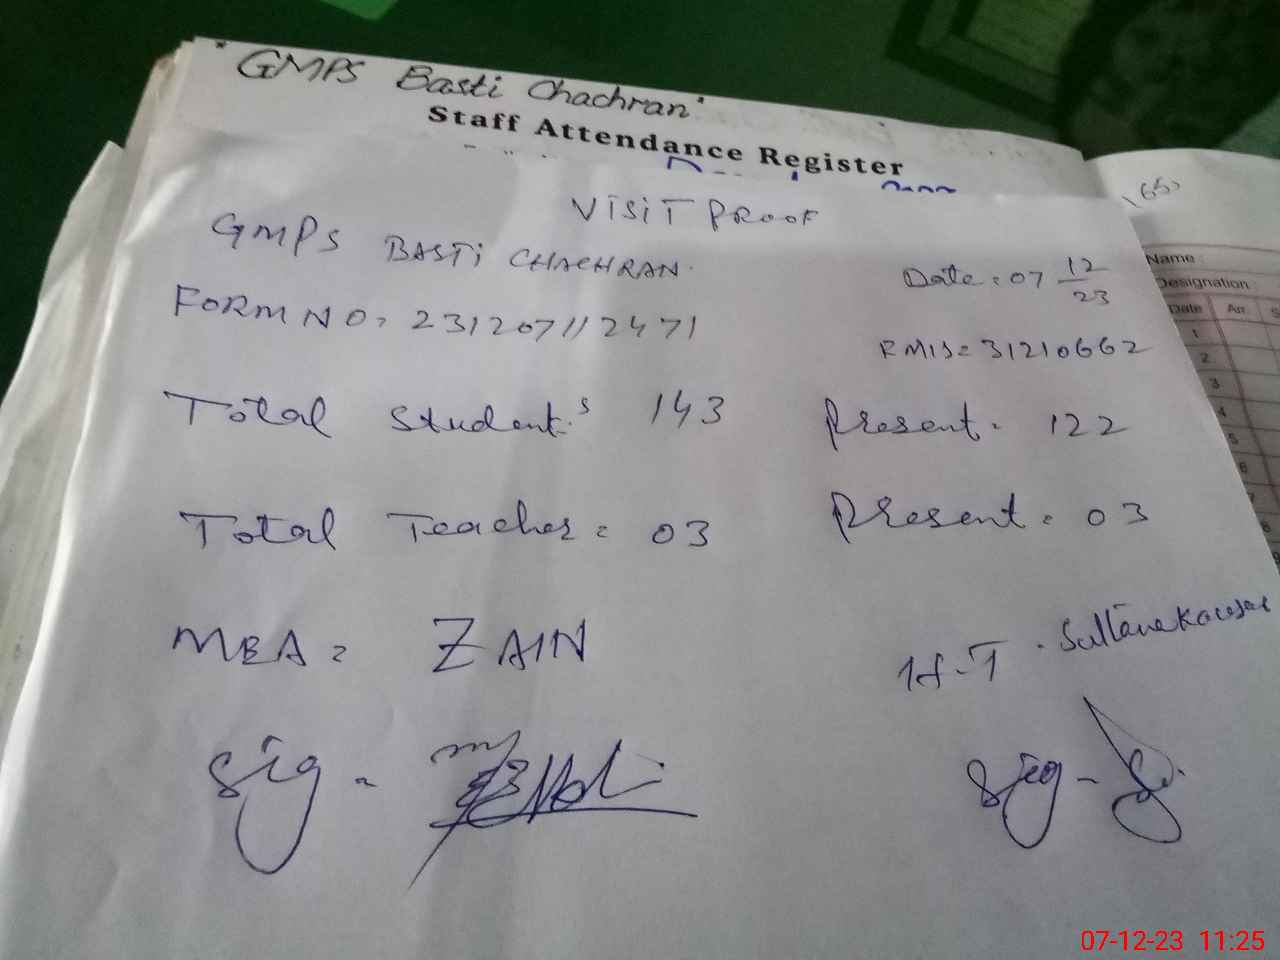 GMPS Basti Chachran
Staff Attendance Register
VISIT PROOF
GMPS BASTI CHACHRAN.
Date = 07 12/23
FORM NO, 231207112471
EMIS = 31210662
Total Students 143
Present = 122
Total Teacher = 03
Present = 03
MEA = ZAIN
H-T. Sultana
Sig -
Sig -
(65)
Name
Designation
Date Arr.
1
2
3
4
5
6
7
8
07-12-23 11:25